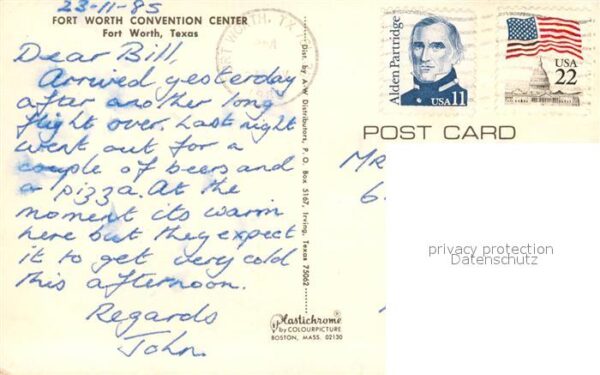 23-11-85
FORT WORTH CONVENTION CENTER
Fort Worth, Texas
Dear Bill,
Arrived yesterday
after another long
flight over. Last night
went out for a
couple of beers and
a pizza. At the
moment its warm
here but they expect
it to get very cold
this afternoon.
Regards
John.
Dist. by A-W Distributors, P. O. Box 5167, Irving, Texas 75062
Plastichrome
by COLOURPICTURE
BOSTON, MASS. 02130
FORT WORTH, TX
PM
Alden Partridge
USA 11
USA
22
POST CARD
MR
6
privacy protection
Datenschutz